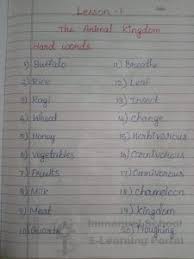 Lesson -1
The Animal Kingdom
Hard words
1) Buffalo 11) Breathe
2) Rice 12) Leaf
3) Ragi 13) Insect
4) Wheat 14) Change
5) Honey 15) Herbivorous
6) Vegetables 16) Carnivorous
7) Fruits 17) Omnivorous
8) Milk 18) Chameleon
9) Meat 19) Kingdom
10) 20)
School
E-Learning Portal